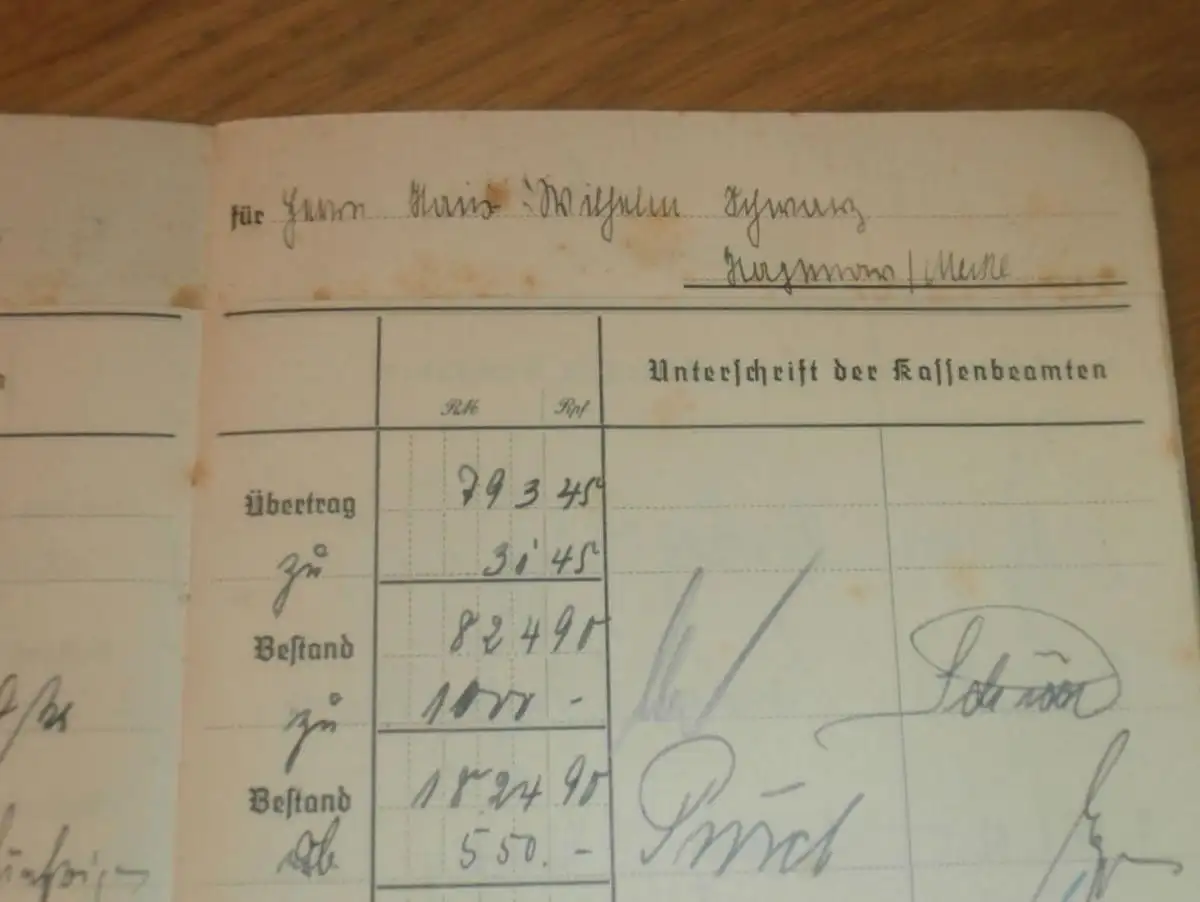 für Herrn Hans-Wilhelm Schwarz
Hagenow / Meckl
Unterschrift der Kassenbeamten
RM Rpf
Übertrag 793 45
zu 31 45
Bestand 824 90
zu 1000 -
Bestand 1824 90
Ab 550. -